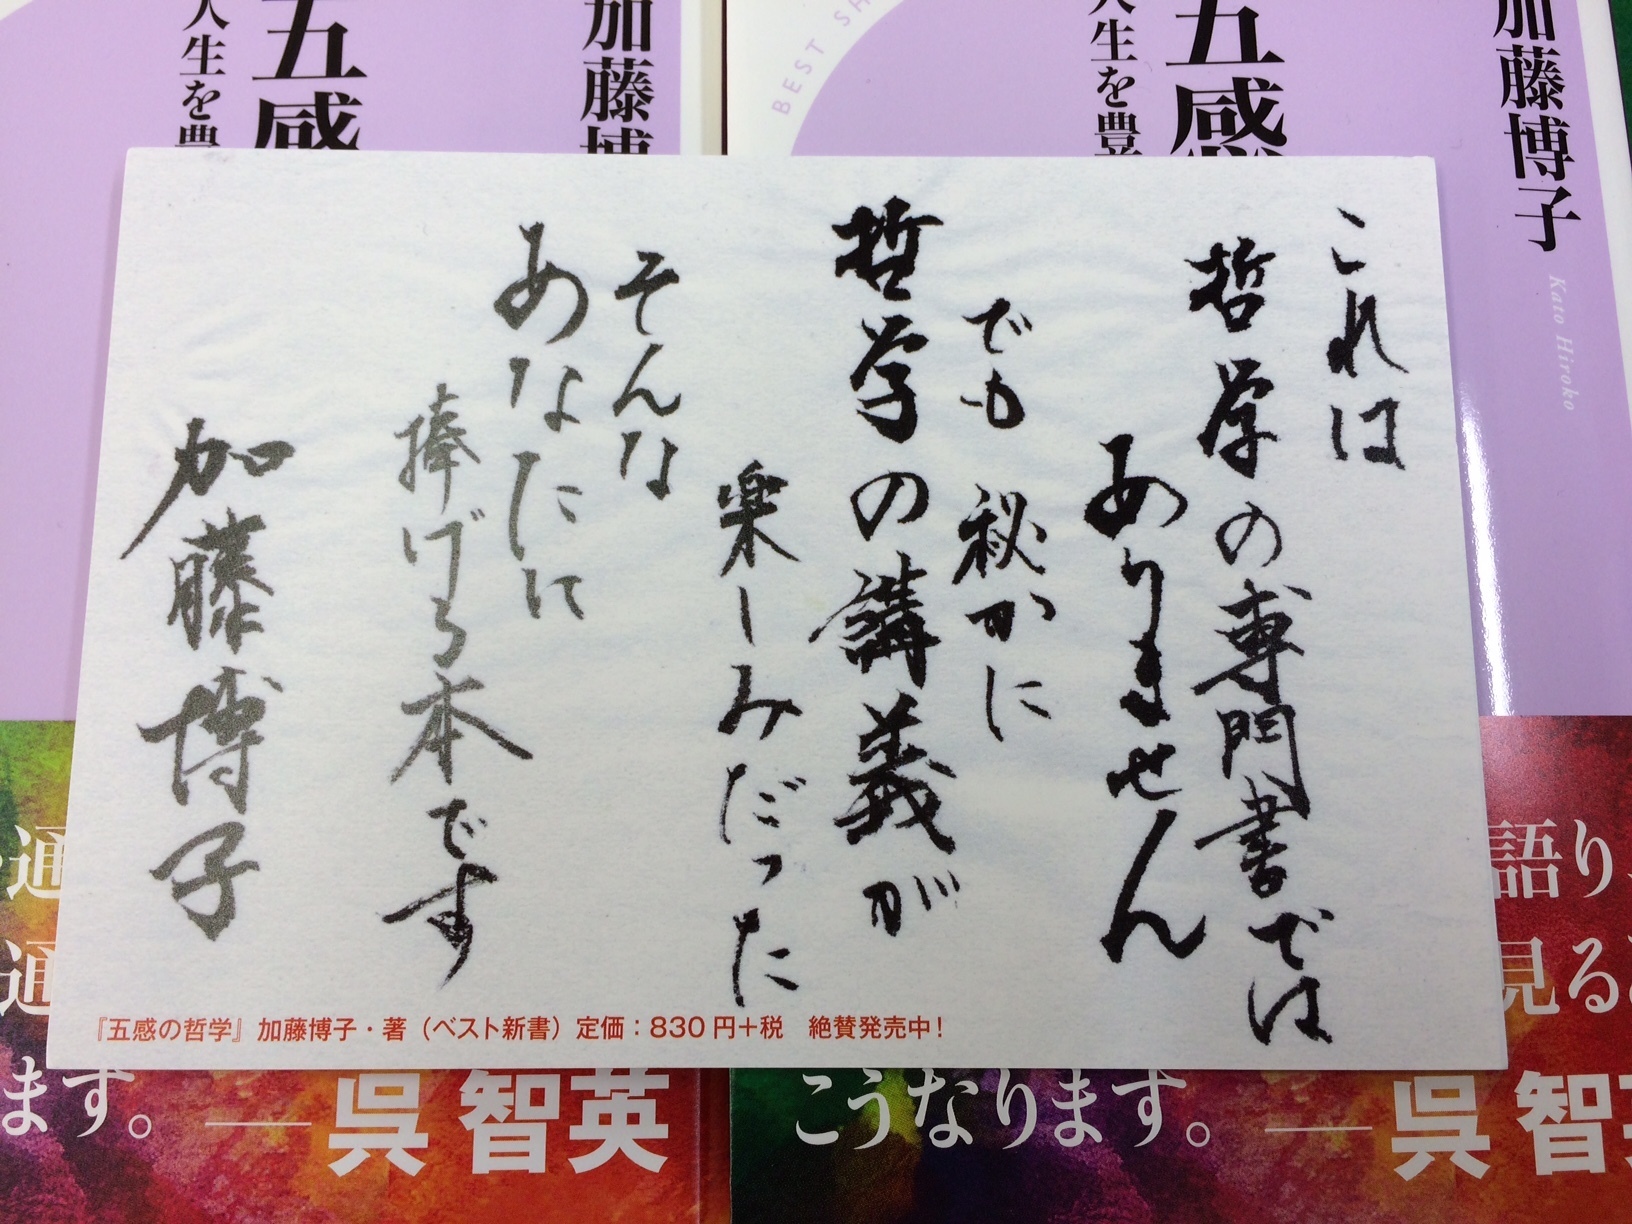 これは
哲学の専門書では
ありません
でも秘かに
哲学の講義が
楽しみだった
そんな
あなたに
捧げる本です
加藤博子
『五感の哲学』加藤博子・著(ベスト新書)定価:830円+税 絶賛発売中!
加藤博子
Kato Hiroko
五感
人生を豊
BEST
加藤博
五感
人生を豊
語り、
見る
こうなります。
——呉 智英
通
通
ます。
——呉 智英